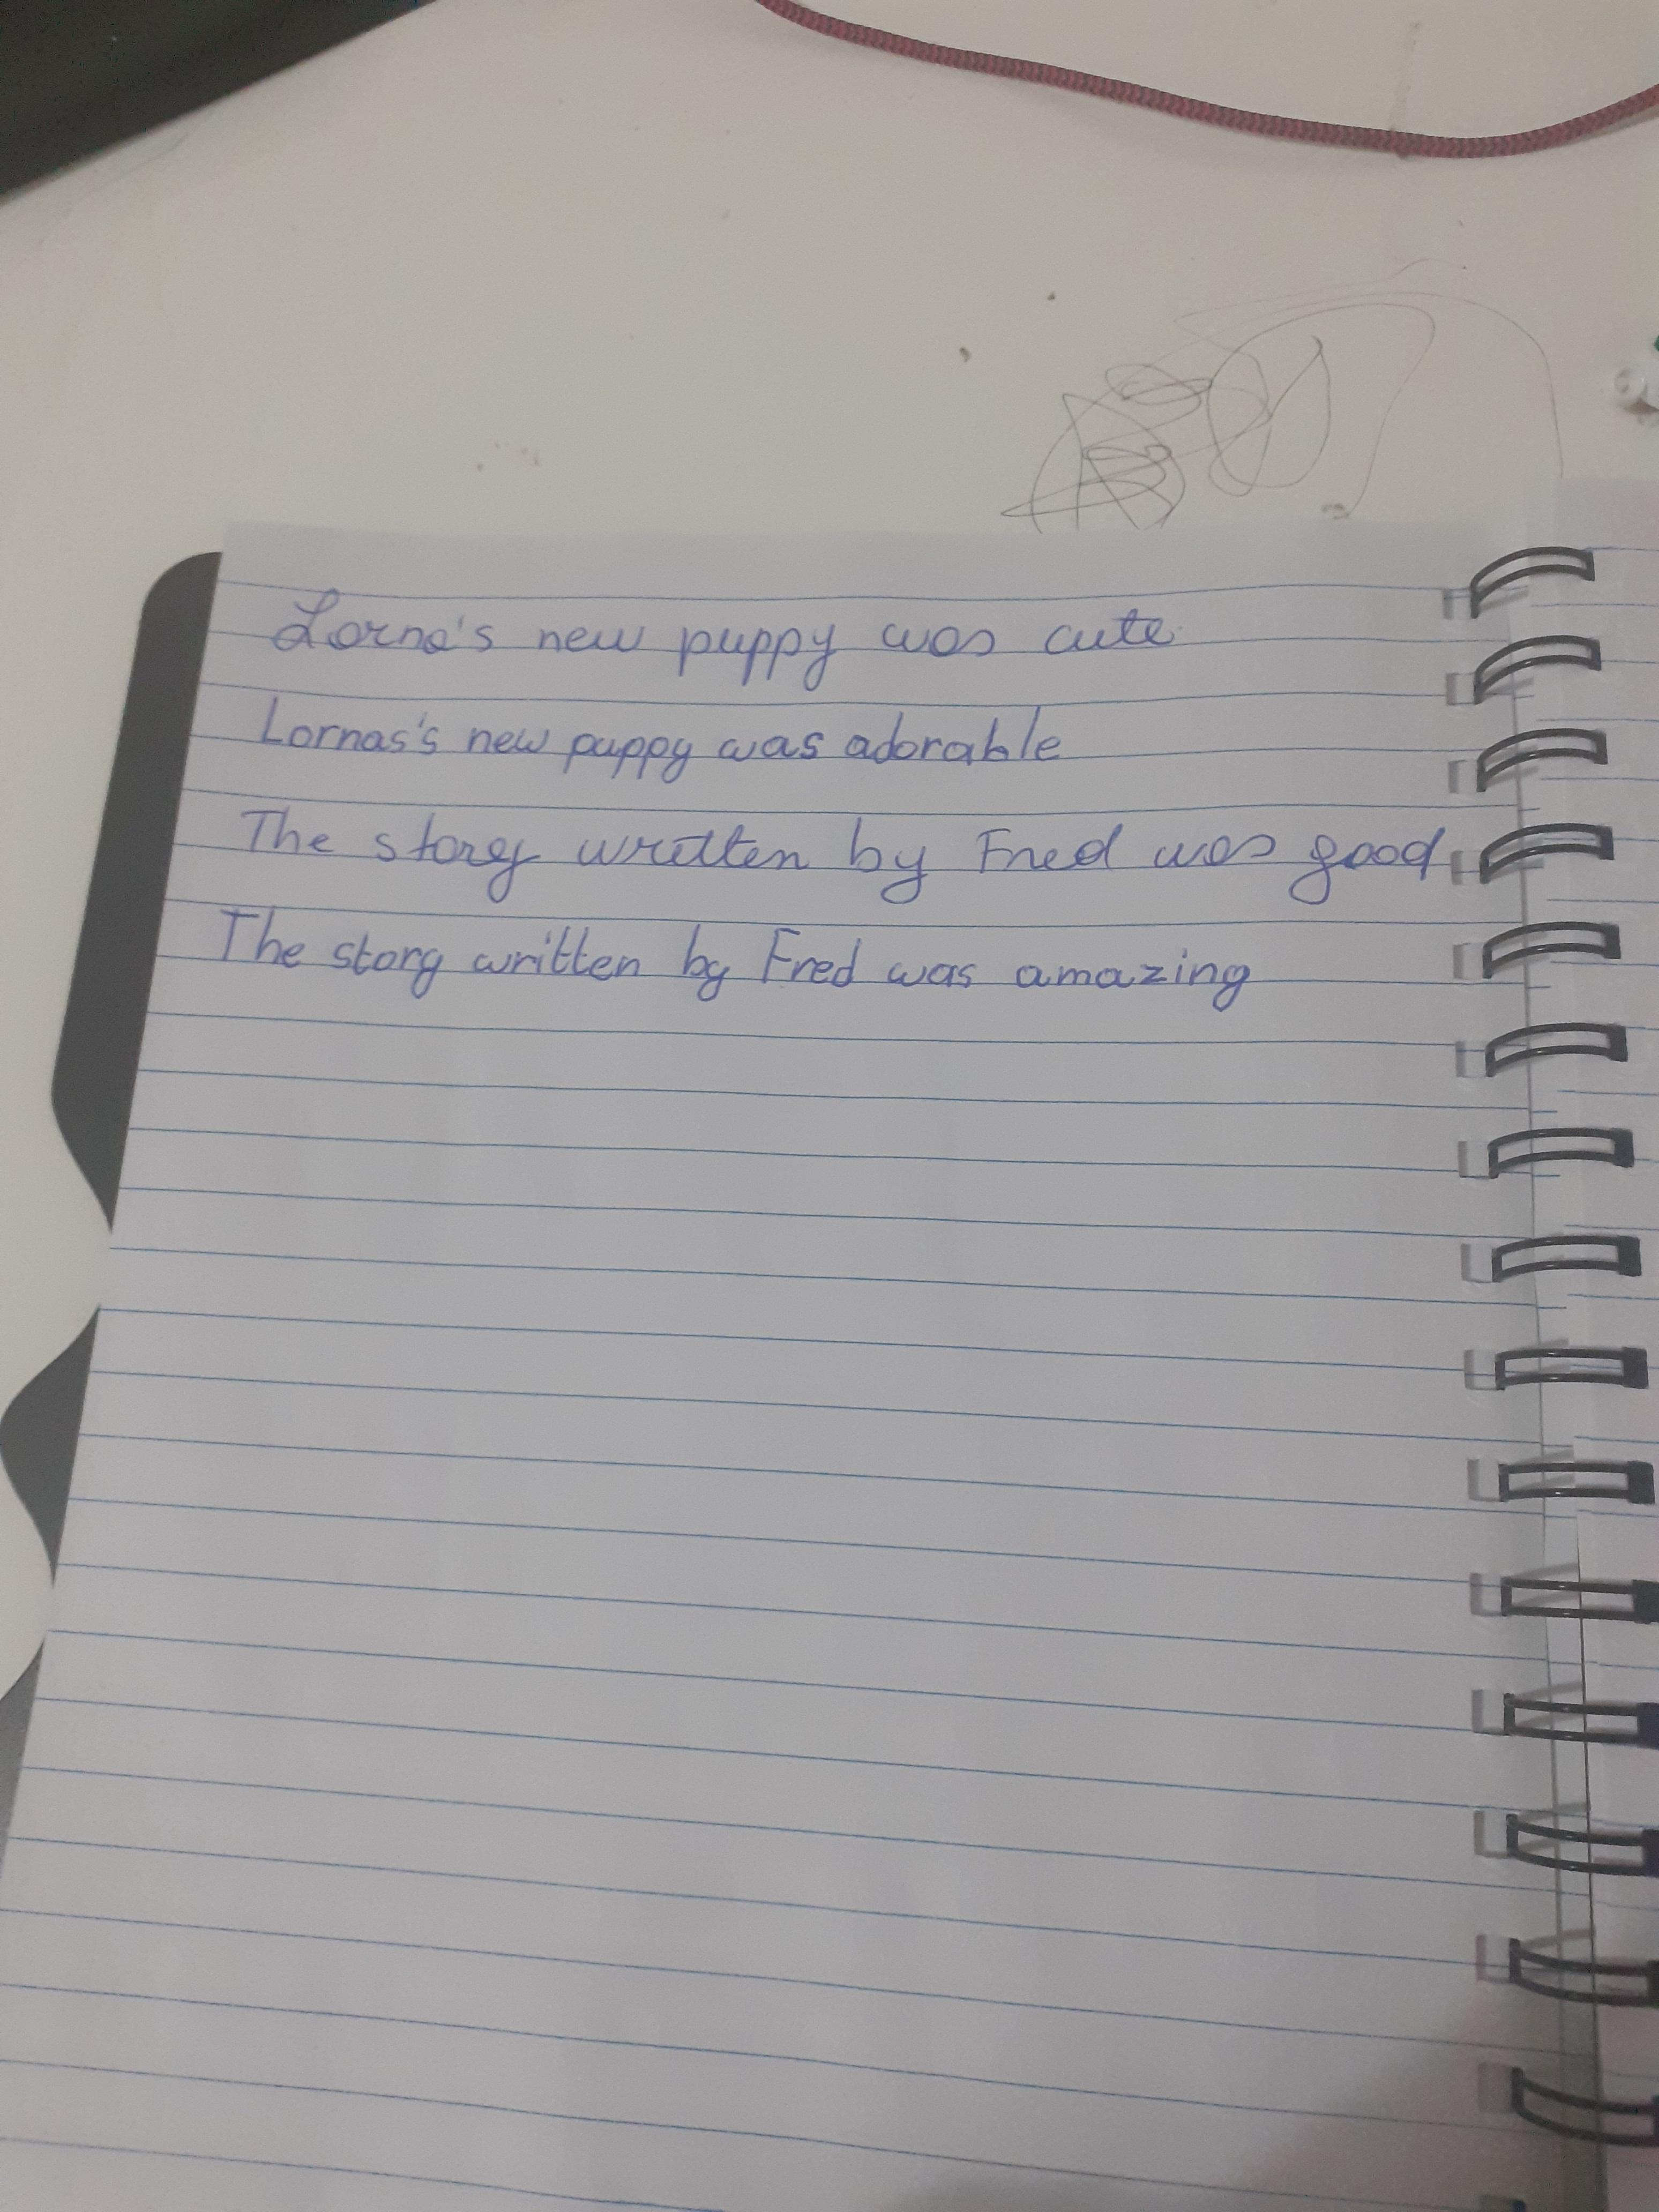 Lorna's new puppy was cute
Lornas's new puppy was adorable
The story written by Fred was good
The story written by Fred was amazing